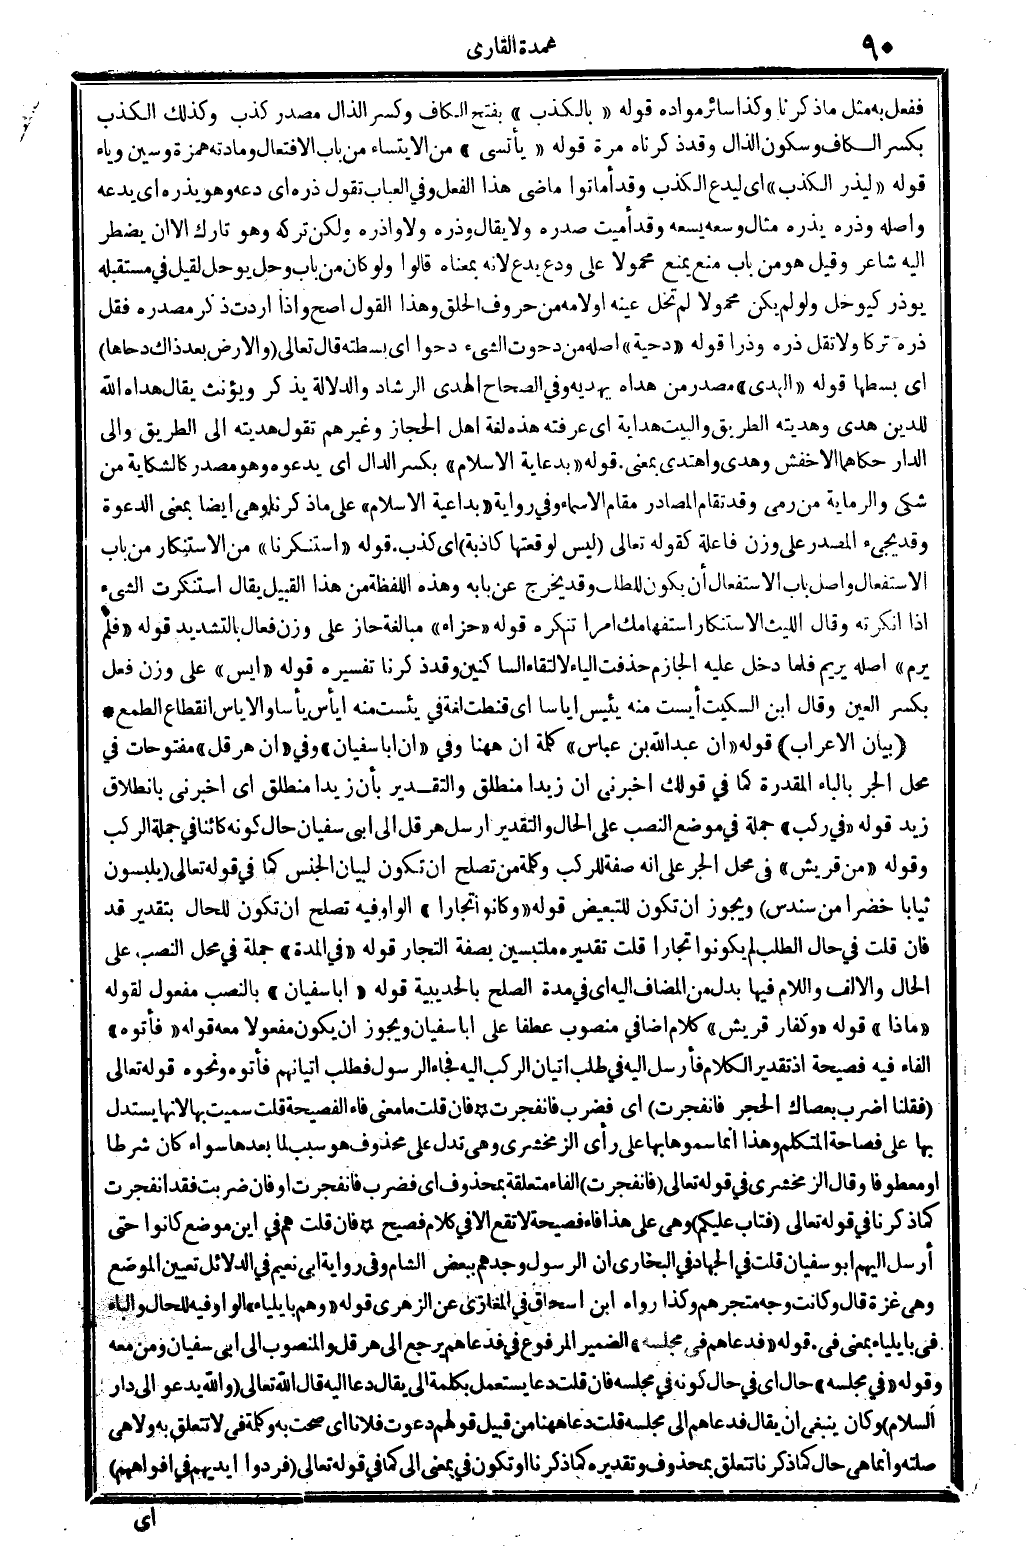 ٩٠
عمدة القارى
ففعل به مثل ماذكرنا وكذا سائر مواده قوله « بالكذب » بفتح الكاف وكسر الذال مصدر كذب وكذلك الكذب
بكسر الكاف وسكون الذال وقد ذكرناه مرة قوله « يأتسى » من الايتساء من باب الافتعال ومادته همزة وسين وياء
قوله « ليذر الكذب» اى ليدع الكذب وقد أماتوا ماضى هذا الفعل وفي العباب تقول ذره اى دعه وهو يذره اى يدعه
واصله وذره يذره مثال وسعه يسعه وقد أميت صدره ولا يقال وذره ولا واذره ولكن تركه وهو تارك الا ان يضطر
اليه شاعر وقيل هو من باب منع يمنع محمولا على ودع يدع لانه بمعناه قالوا ولو كان من باب وحل يوحل لقيل في مستقبله
يوذر كيوحل ولو لم يكن محمولا لم تخل عينه اولامه من حروف الحلق وهذا القول اصح واذا اردت ذكر مصدره فقل
ذره تركا ولا تقل ذره وذرا قوله «دحية» اصله من دحوت الشىء دحوا اى بسطته قال تعالى (والارض بعد ذلك دحاها)
اى بسطها قوله «الهدى» مصدر من هداه يهديه وفي الصحاح الهدى الرشاد والدلالة يذكر ويؤنث يقال هداه الله
للدين هدى وهديته الطريق والبيت هداية اى عرفته هذه لغة اهل الحجاز وغيرهم تقول هديته الى الطريق والى
الدار حكاها الاخفش وهدى واهتدى بمعنى. قوله «بدعاية الاسلام» بكسر الدال اى يدعوه وهو مصدر كالشكاية من
شكى والرماية من رمى وقد تقام المصادر مقام الاسماء وفي رواية «بداعية الاسلام» على ماذكرناه وهى ايضا بمعنى الدعوة
وقد يجىء المصدر على وزن فاعلة كقوله تعالى (ليس لوقعتها كاذبة) اى كذب. قوله «استنكرنا» من الاستنكار من باب
الاستفعال واصل باب الاستفعال أن يكون للطلب وقد يخرج عن بابه وهذه اللفظة من هذا القبيل يقال استنكرت الشىء
اذا انكرته وقال الليث الاستنكار استفهامك امرا تنكره قوله «حزاء» مبالغة حاز على وزن فعال بالتشديد قوله «فلم
يرم» اصله يريم فلما دخل عليه الجازم حذفت الياء لالتقاء الساكنين وقد ذكرنا تفسيره قوله «ايس» على وزن فعل
بكسر العين وقال ابن السكيت أيست منه يئيس اياسا اى قنطت لغة في يئست منه ايأس يأسا والاياس انقطاع الطمع *
(بيان الاعراب) قوله «ان عبد الله بن عباس» كلمة ان ههنا وفي «ان اباسفيان» وفي «ان هرقل» مفتوحات في
محل الجر بالباء المقدرة كما في قولك اخبرنى ان زيدا منطلق والتقدير بأن زيدا منطلق اى اخبرنى بانطلاق
زيد قوله «في ركب» جملة في موضع النصب على الحال والتقدير ارسل هرقل الى ابى سفيان حال كونه كائنا في جملة الركب
وقوله «من قريش» فى محل الجر على انه صفة للركب وكلمة من تصلح ان تكون لبيان الجنس كما في قوله تعالى (يلبسون
ثيابا خضرا من سندس) ويجوز ان تكون للتبعيض قوله «وكانوا تجارا » الواو فيه تصلح ان تكون للحال بتقدير قد
فان قلت في حال الطلب لم يكونوا تجارا قلت تقديره ملتبسين بصفة التجار قوله «في المدة» جملة في محل النصب على
الحال والالف واللام فيها بدل من المضاف اليه اى في مدة الصلح بالحديبية قوله « اباسفيان » بالنصب مفعول لقوله
«ماذا » قوله «وكفار قريش» كلام اضافي منصوب عطفا على اباسفيان ويجوز ان يكون مفعولا معه قوله « فأتوه »
الفاء فيه فصيحة اذ تقدير الكلام فأرسل اليه في طلب اتيان الركب اليه فجاء الرسول فطلب اتيانهم فأتوه ونحوه قوله تعالى
(فقلنا اضرب بعصاك الحجر فانفجرت) اى فضرب فانفجرت * فان قلت مامعنى فاء الفصيحة قلت سميت بها لانها يستدل
بها على فصاحة المتكلم وهذا انما سموها بها على رأى الزمخشرى وهى تدل على محذوف هو سبب لما بعدها سواء كان شرطا
او معطوفا وقال الزمخشرى في قوله تعالى (فانفجرت) الفاء متعلقة بمحذوف اى فضرب فانفجرت او فان ضربت فقد انفجرت
كما ذكرنا في قوله تعالى (فتاب عليكم) وهى على هذا فاء فصيحة لا تقع الا فى كلام فصيح * فان قلت هم في اين موضع كانوا حتى
أرسل اليهم ابو سفيان قلت في الجهاد في البخارى ان الرسول وجدهم ببعض الشام وفى رواية ابى نعيم في الدلائل تعيين الموضع
وهى غزة قال وكانت وجه متجرهم وكذا رواه ابن اسحاق في المغازى عن الزهرى قوله «وهم بايلياء» الواو فيه للحال والباء
فى بايلياء بمعنى فى. قوله «فدعاهم فى مجلسه» الضمير المرفوع في فدعاهم يرجع الى هرقل والمنصوب الى ابى سفيان ومن معه
وقوله «في مجلسه» حال اى في حال كونه في مجلسه فان قلت دعا يستعمل بكلمة الى يقال دعا اليه قال الله تعالى (والله يدعو الى دار
السلام) وكان ينبغى ان يقال فدعاهم الى مجلسه قلت دعا ههنا من قبيل قولهم دعوت فلانا اى صحت به وكلمة فى لا تتعلق به ولا هى
صلته وانما هى حال كما ذكرنا تتعلق بمحذوف وتقديره كما ذكرنا او تكون في بمعنى الى كما في قوله تعالى (فردوا ايديهم في افواههم)
اى